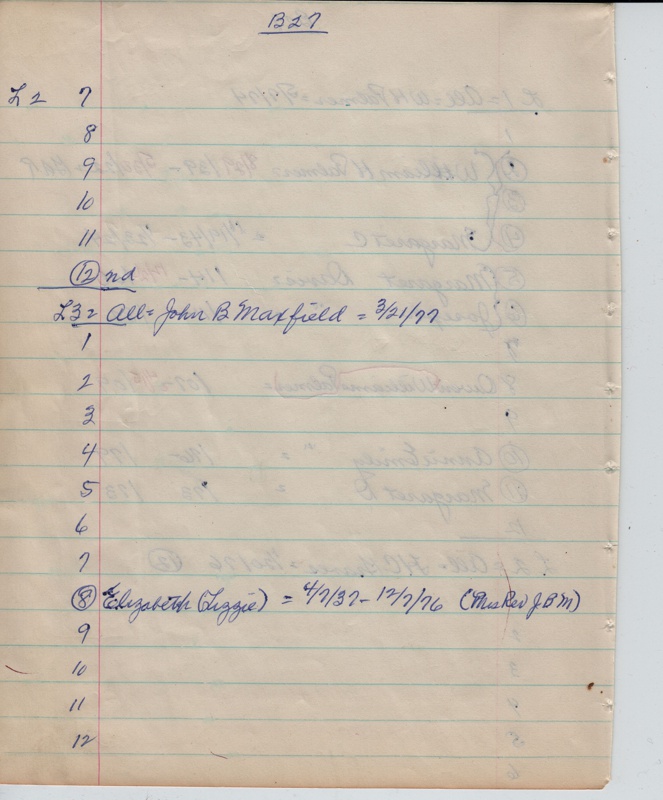 B27
L2 7
8
9
10
11
12 nd
L3= All= John B Maxfield = 3/21/77
1
2
3
4
5
6
7
8 Elizabeth (Lizzie) = 4/7/37- 12/7/76 (Mrs Rev J B M)
9
10
11
12